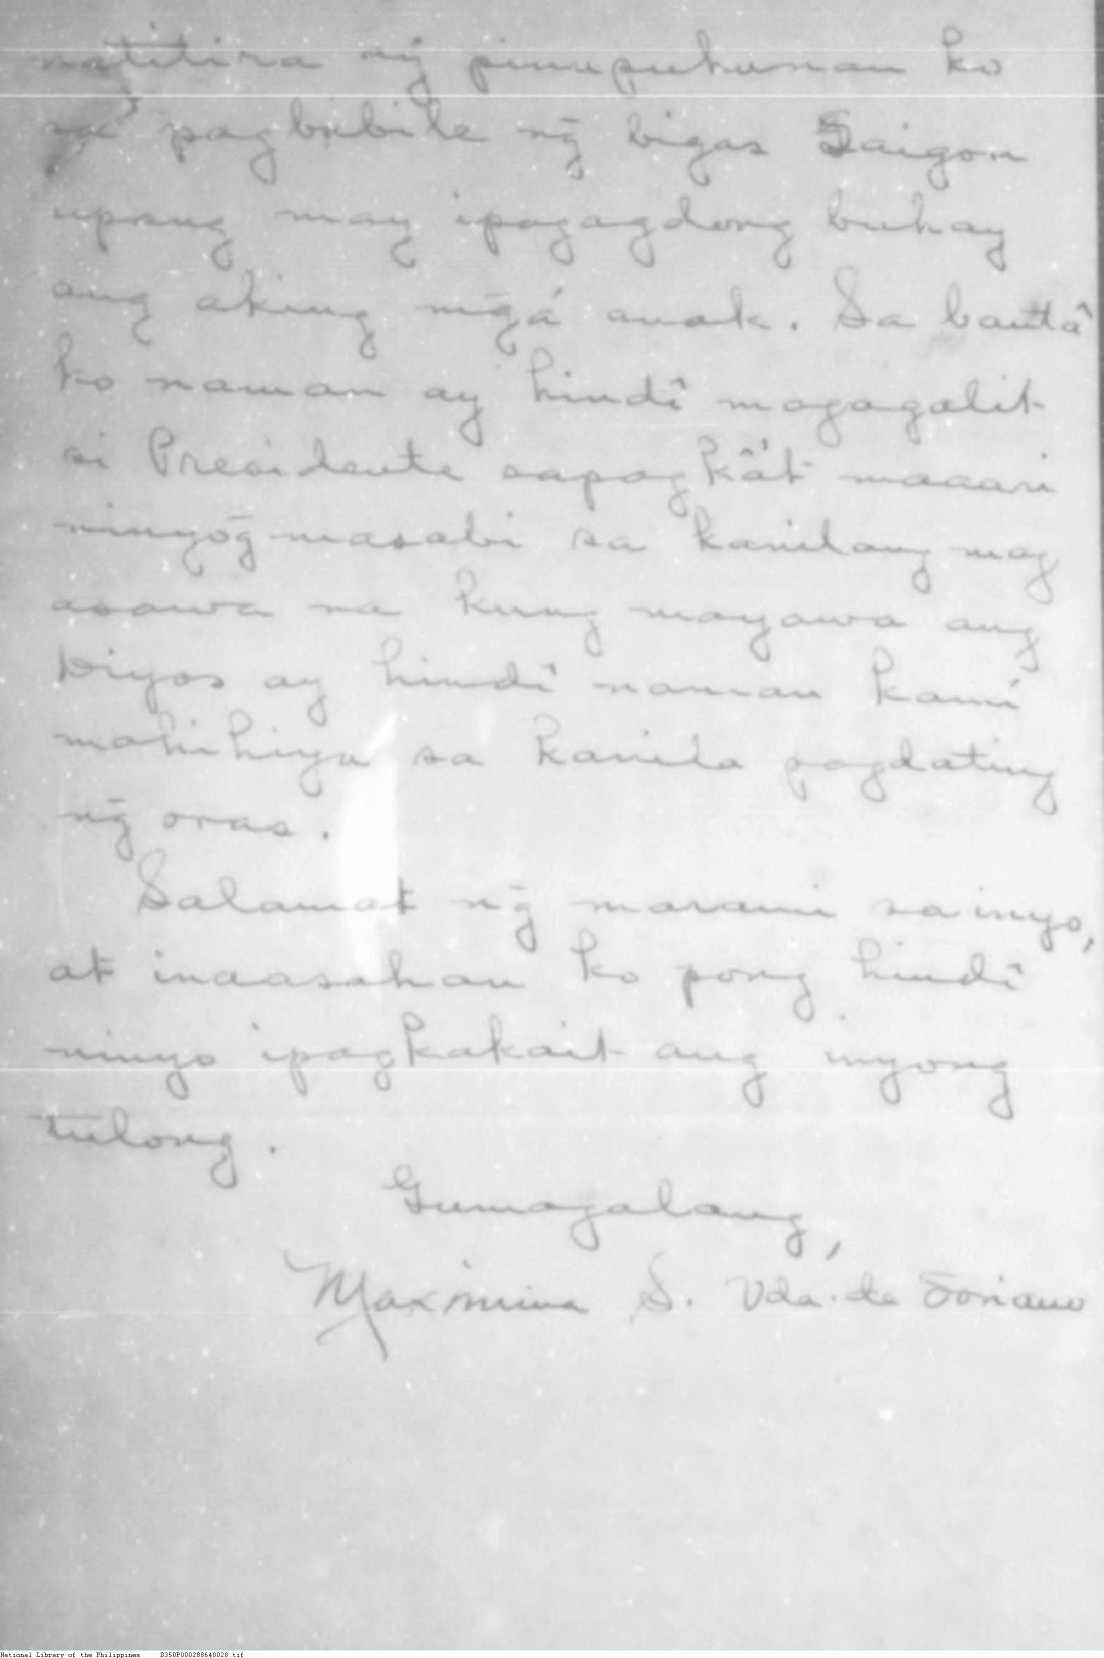 natitira ng̃ pinupuhunan ko
sa pagbibile ng̃ bigas Saigon
upang may ipagagdong buhay
ang aking mg̃á anak. Sa bantâ
ko naman ay hindî magagalit
si Presidente sapagkâ't maaari
ninyog̃ masabi sa kanilang mag
asawa na kung mayawa ang
Diyos ay hindî naman kamí
mahihiya sa kanila pagdating
ng̃ oras.
Salamat ng̃ marami sa inyo,
at inaasahan ko pong hindî
ninyo ipagkakait ang inyong
tulong.
Gumagalang,
Maximina S. Vda. de Soriano
National Library of the Philippines D350P000288640028.tif